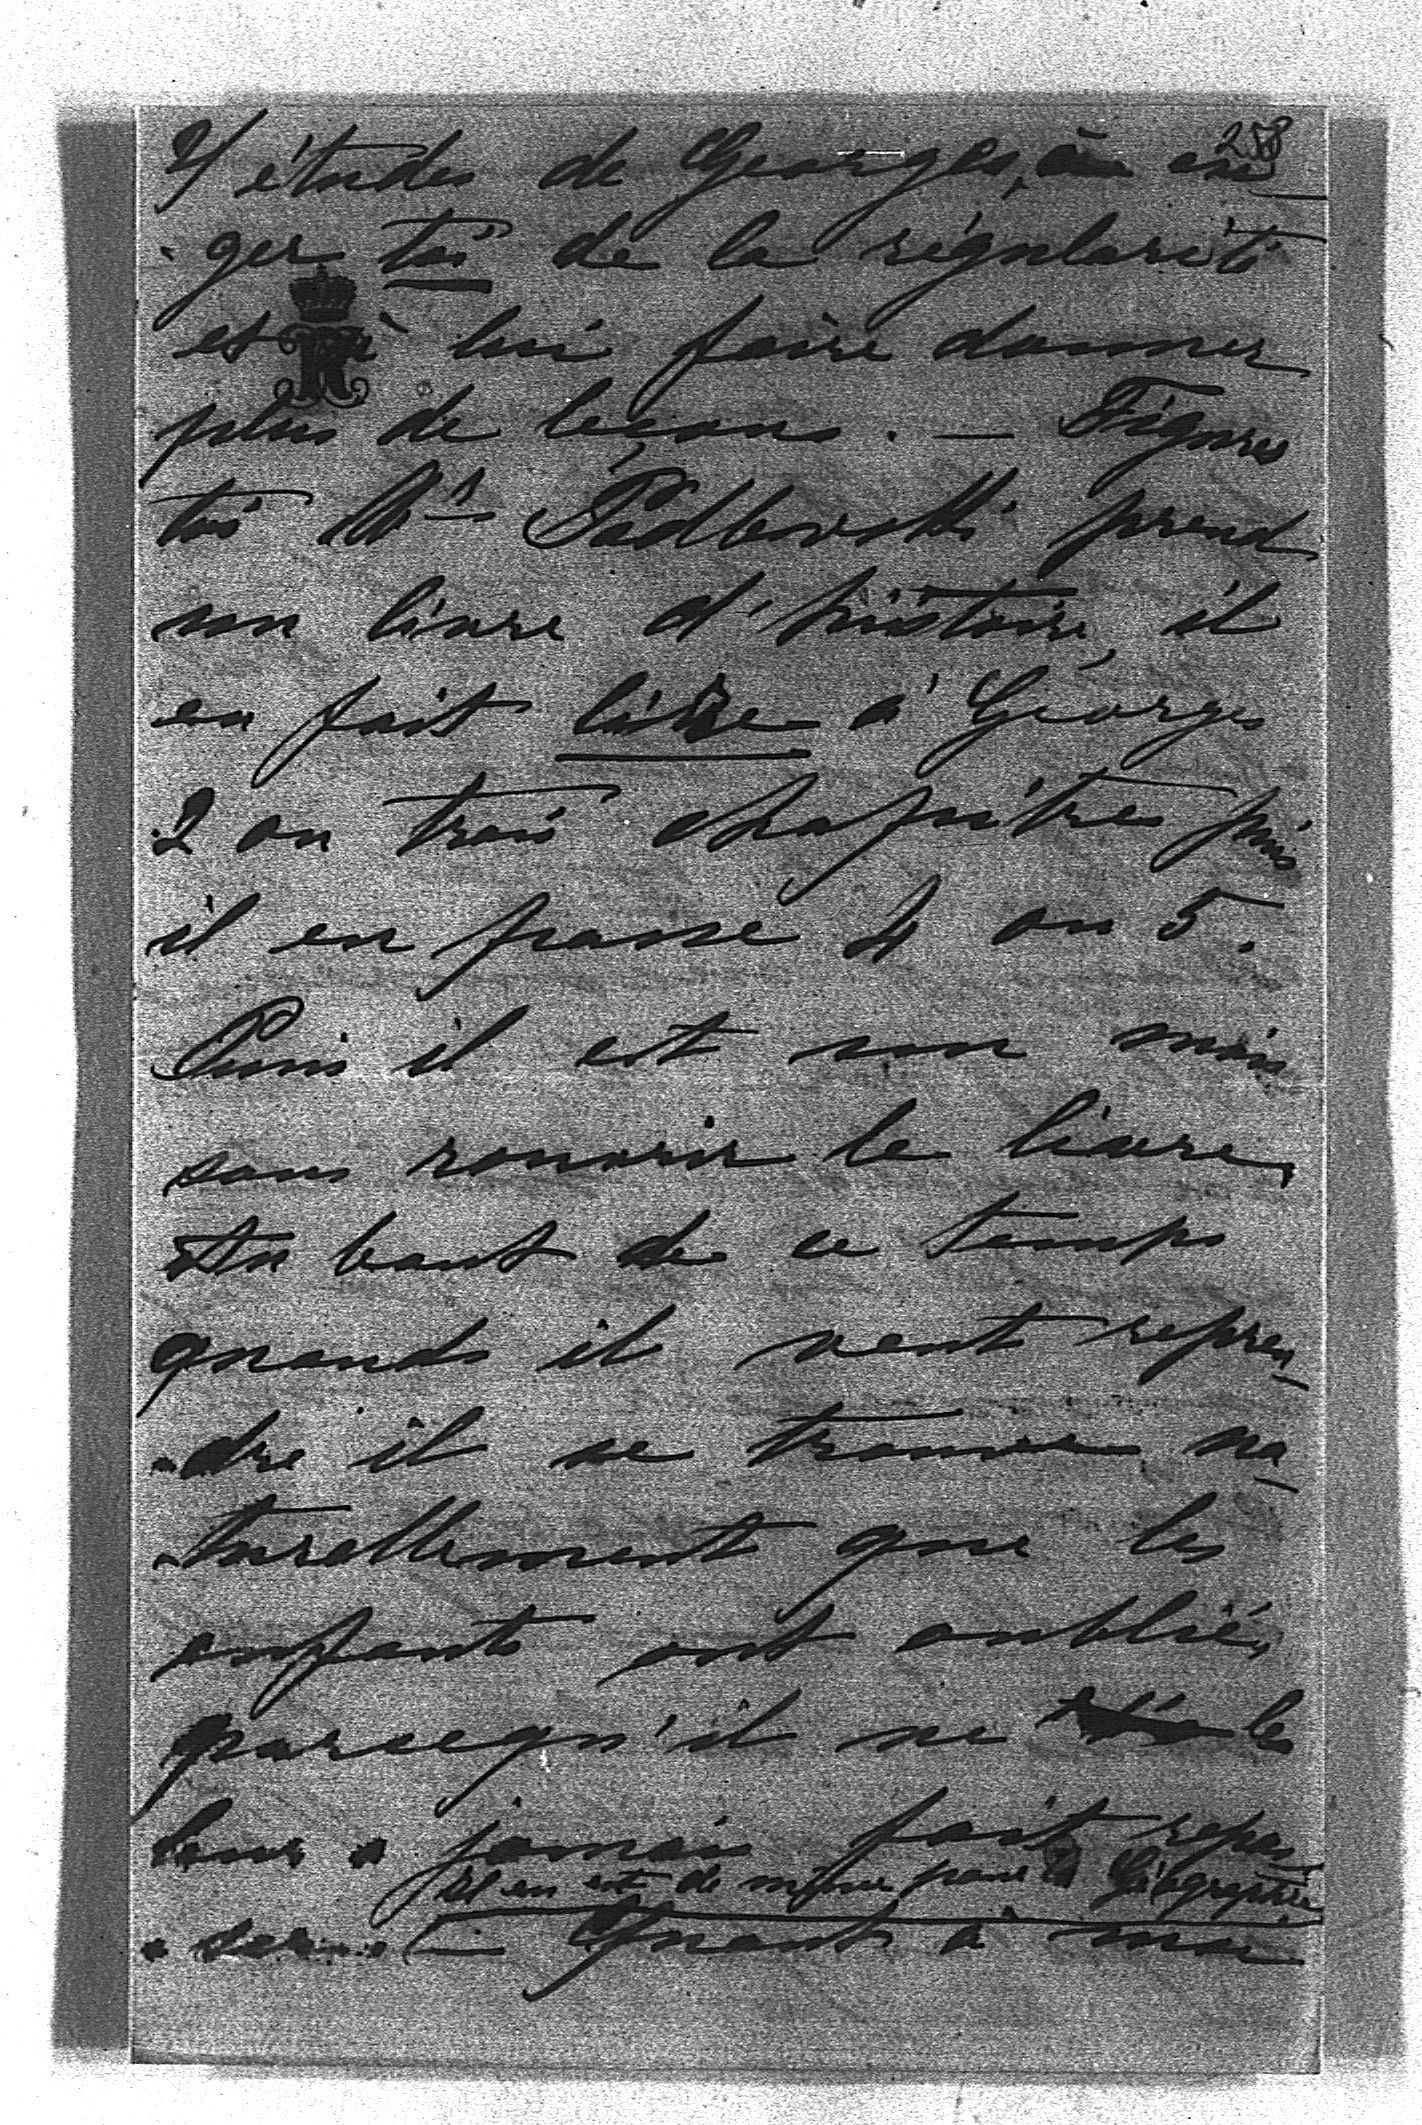 258
4/ études de Georges, à exi-
-ger toi de la régularité
et à lui faire donner
plus de leçons. — Figures
toi Mr Podlewski prend
un livre d'histoire, il
en fait lire à Georges
2 ou trois chapitres puis
il en passe 4 ou 5.
Puis il est un mois
sans rouvrir le livre,
Au bout de ce temps
quand il veut repren-
-dre il se trouve na-
-turellement que les
enfants ont oubliés
parcequ'il ne le
leur a jamais fait repas-
Il en est de même pour la Géographie
-ser. — Quant à mon